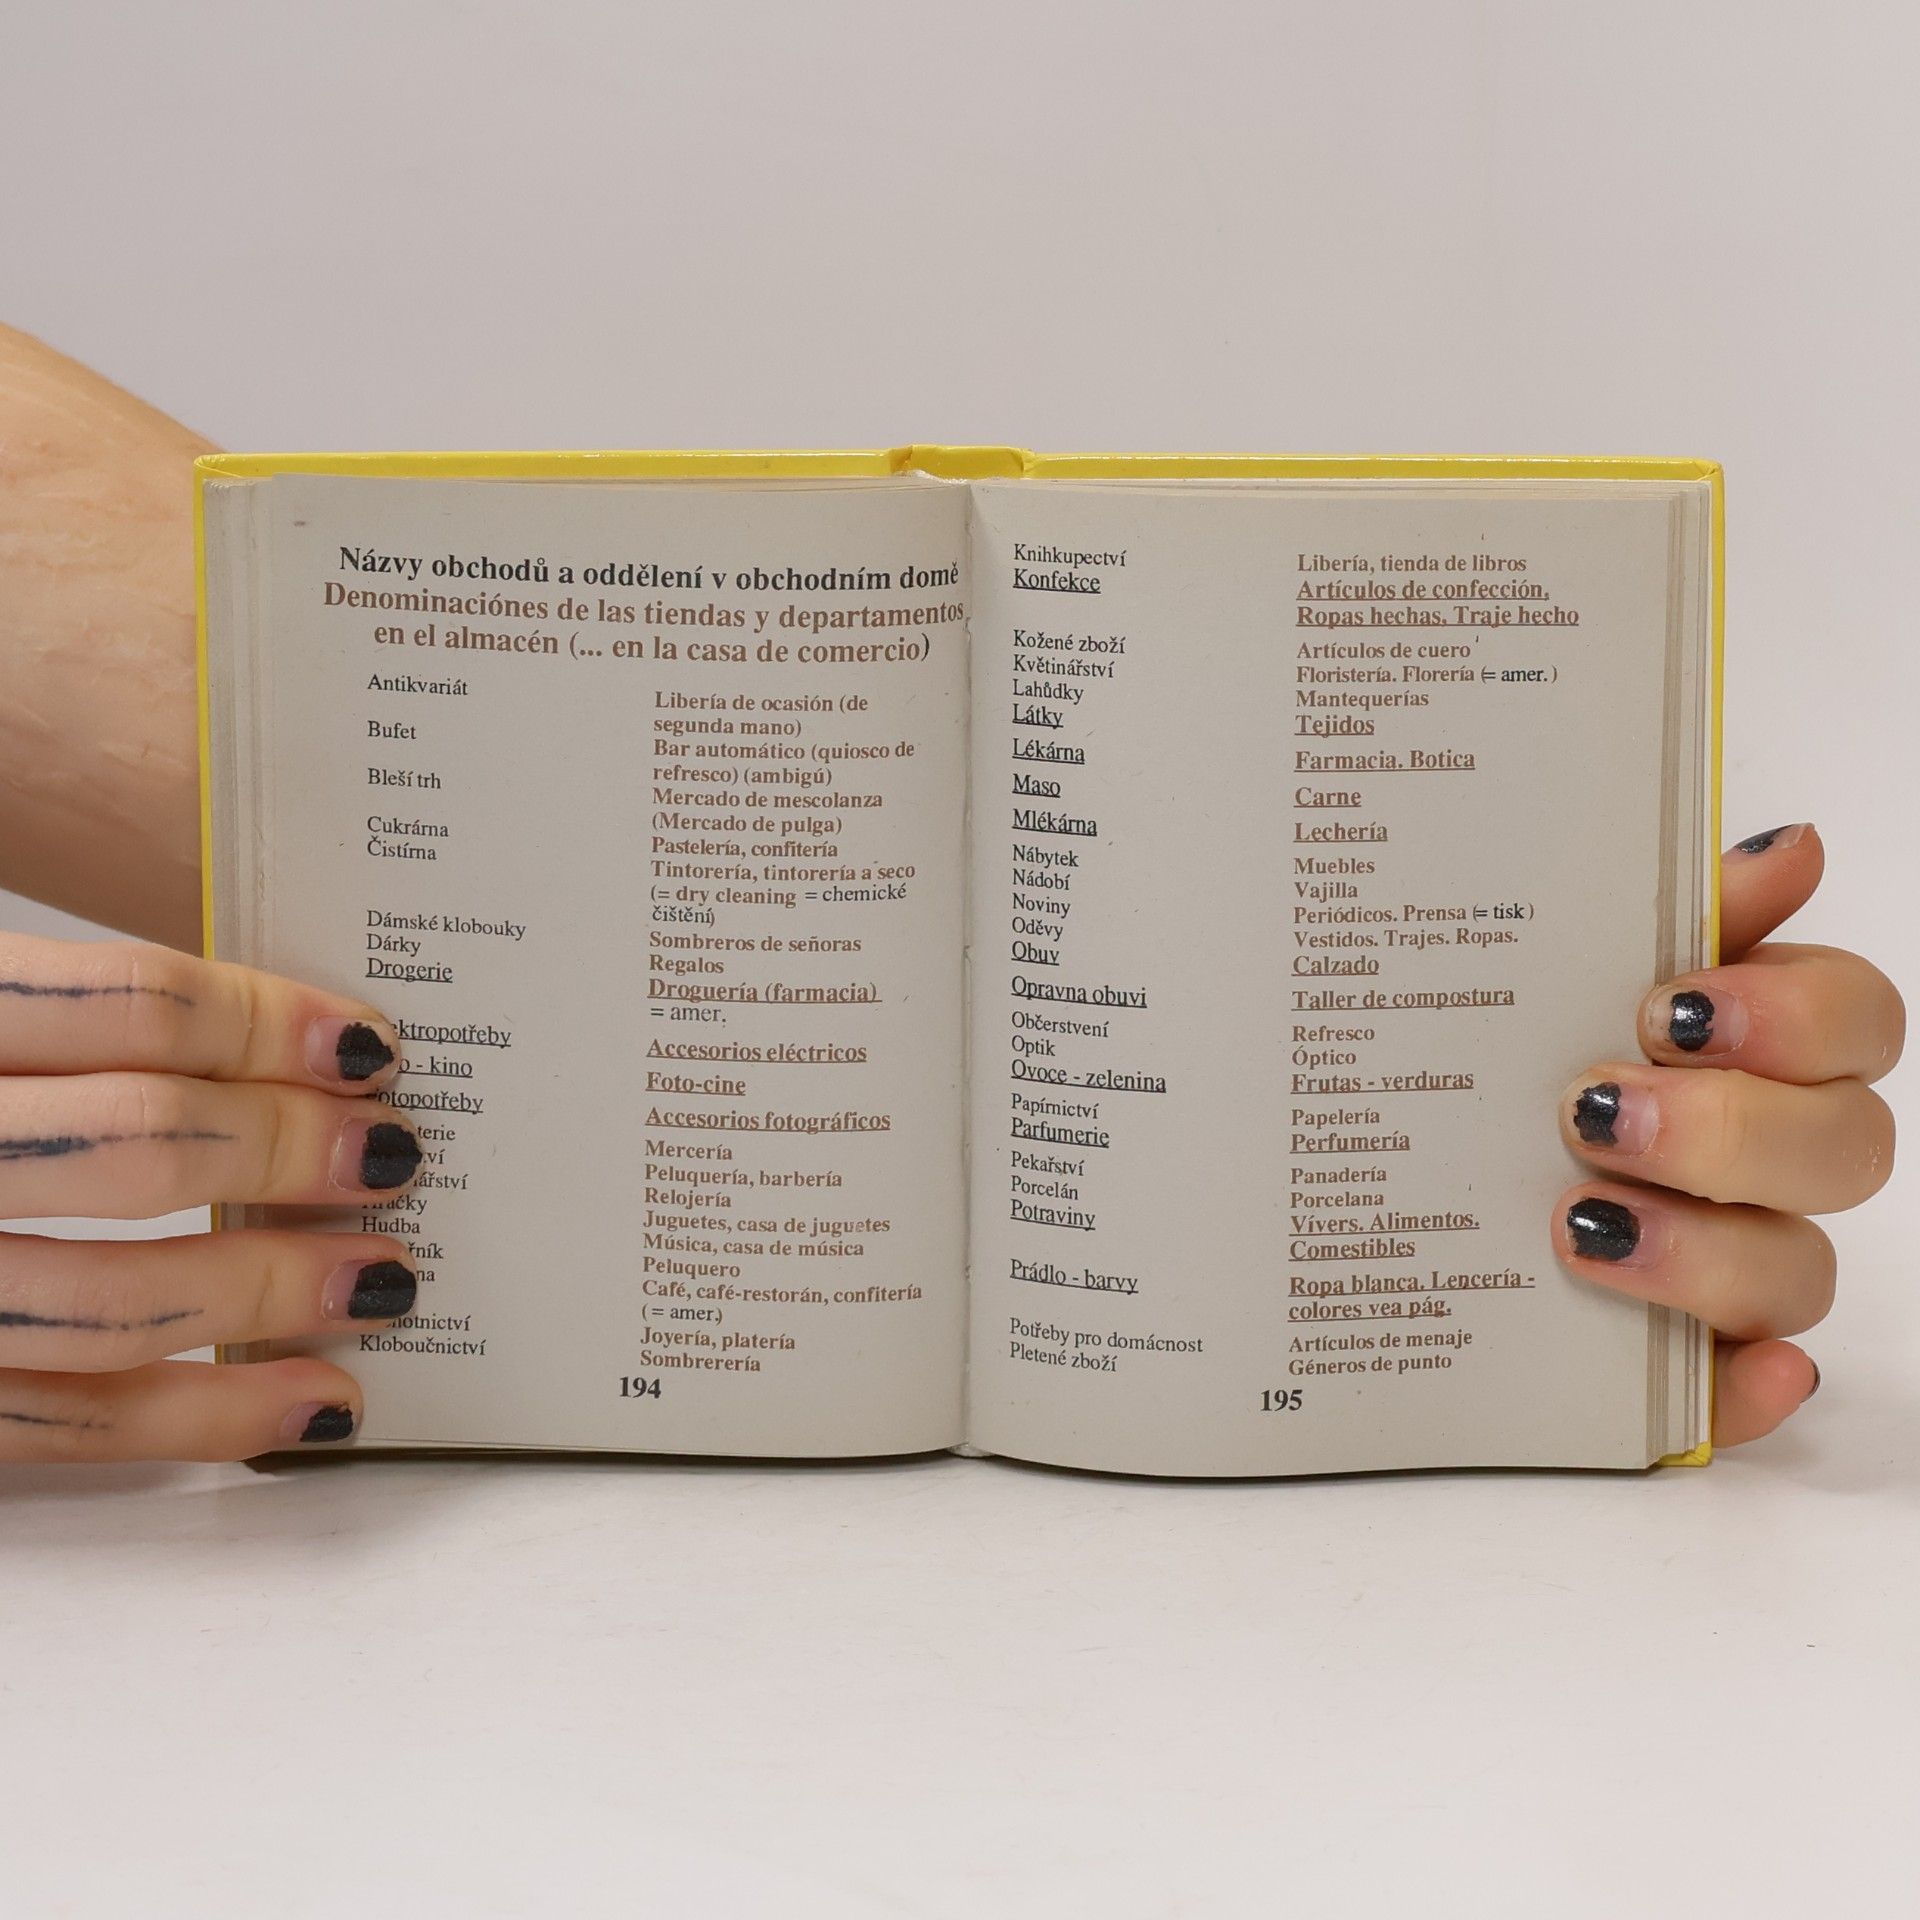 Názvy obchodů a oddělení v obchodním domě
Denominaciónes de las tiendas y departamentos
en el almacén (... en la casa de comercio)
Antikvariát
Libería de ocasión (de
segunda mano)
Bufet
Bar automático (quiosco de
refresco) (ambigú)
Bleší trh
Mercado de mescolanza
(Mercado de pulga)
Cukrárna
Pastelería, confitería
Čistírna
Tintorería, tintorería a seco
(= dry cleaning = chemické
čištění)
Dámské klobouky
Sombreros de señoras
Dárky
Regalos
Drogerie
Droguería (farmacia)
= amer.
Accesorios eléctricos
- kino
Foto-cine
Accesorios fotográficos
Mercería
Peluquería, barbería
Relojería
Juguetes, casa de juguetes
Hudba
Música, casa de música
Peluquero
Café, café-restorán, confitería
(= amer.)
Joyería, platería
Kloboučnictví
Sombrerería
194
Knihkupectví
Libería, tienda de libros
Konfekce
Artículos de confección,
Ropas hechas, Traje hecho
Kožené zboží
Artículos de cuero
Květinářství
Floristería. Florería (= amer.)
Lahůdky
Mantequerías
Látky
Tejidos
Lékárna
Farmacia. Botica
Maso
Carne
Mlékárna
Lechería
Nábytek
Muebles
Nádobí
Vajilla
Noviny
Periódicos. Prensa (= tisk)
Oděvy
Vestidos. Trajes. Ropas.
Obuv
Calzado
Opravna obuvi
Taller de compostura
Občerstvení
Refresco
Optik
Óptico
Ovoce - zelenina
Frutas - verduras
Papírnictví
Papelería
Parfumerie
Perfumería
Pekařství
Panadería
Porcelán
Porcelana
Potraviny
Vívers. Alimentos.
Comestibles
Prádlo - barvy
Ropa blanca. Lencería -
colores vea pág.
Potřeby pro domácnost
Artículos de menaje
Pletené zboží
Géneros de punto
195